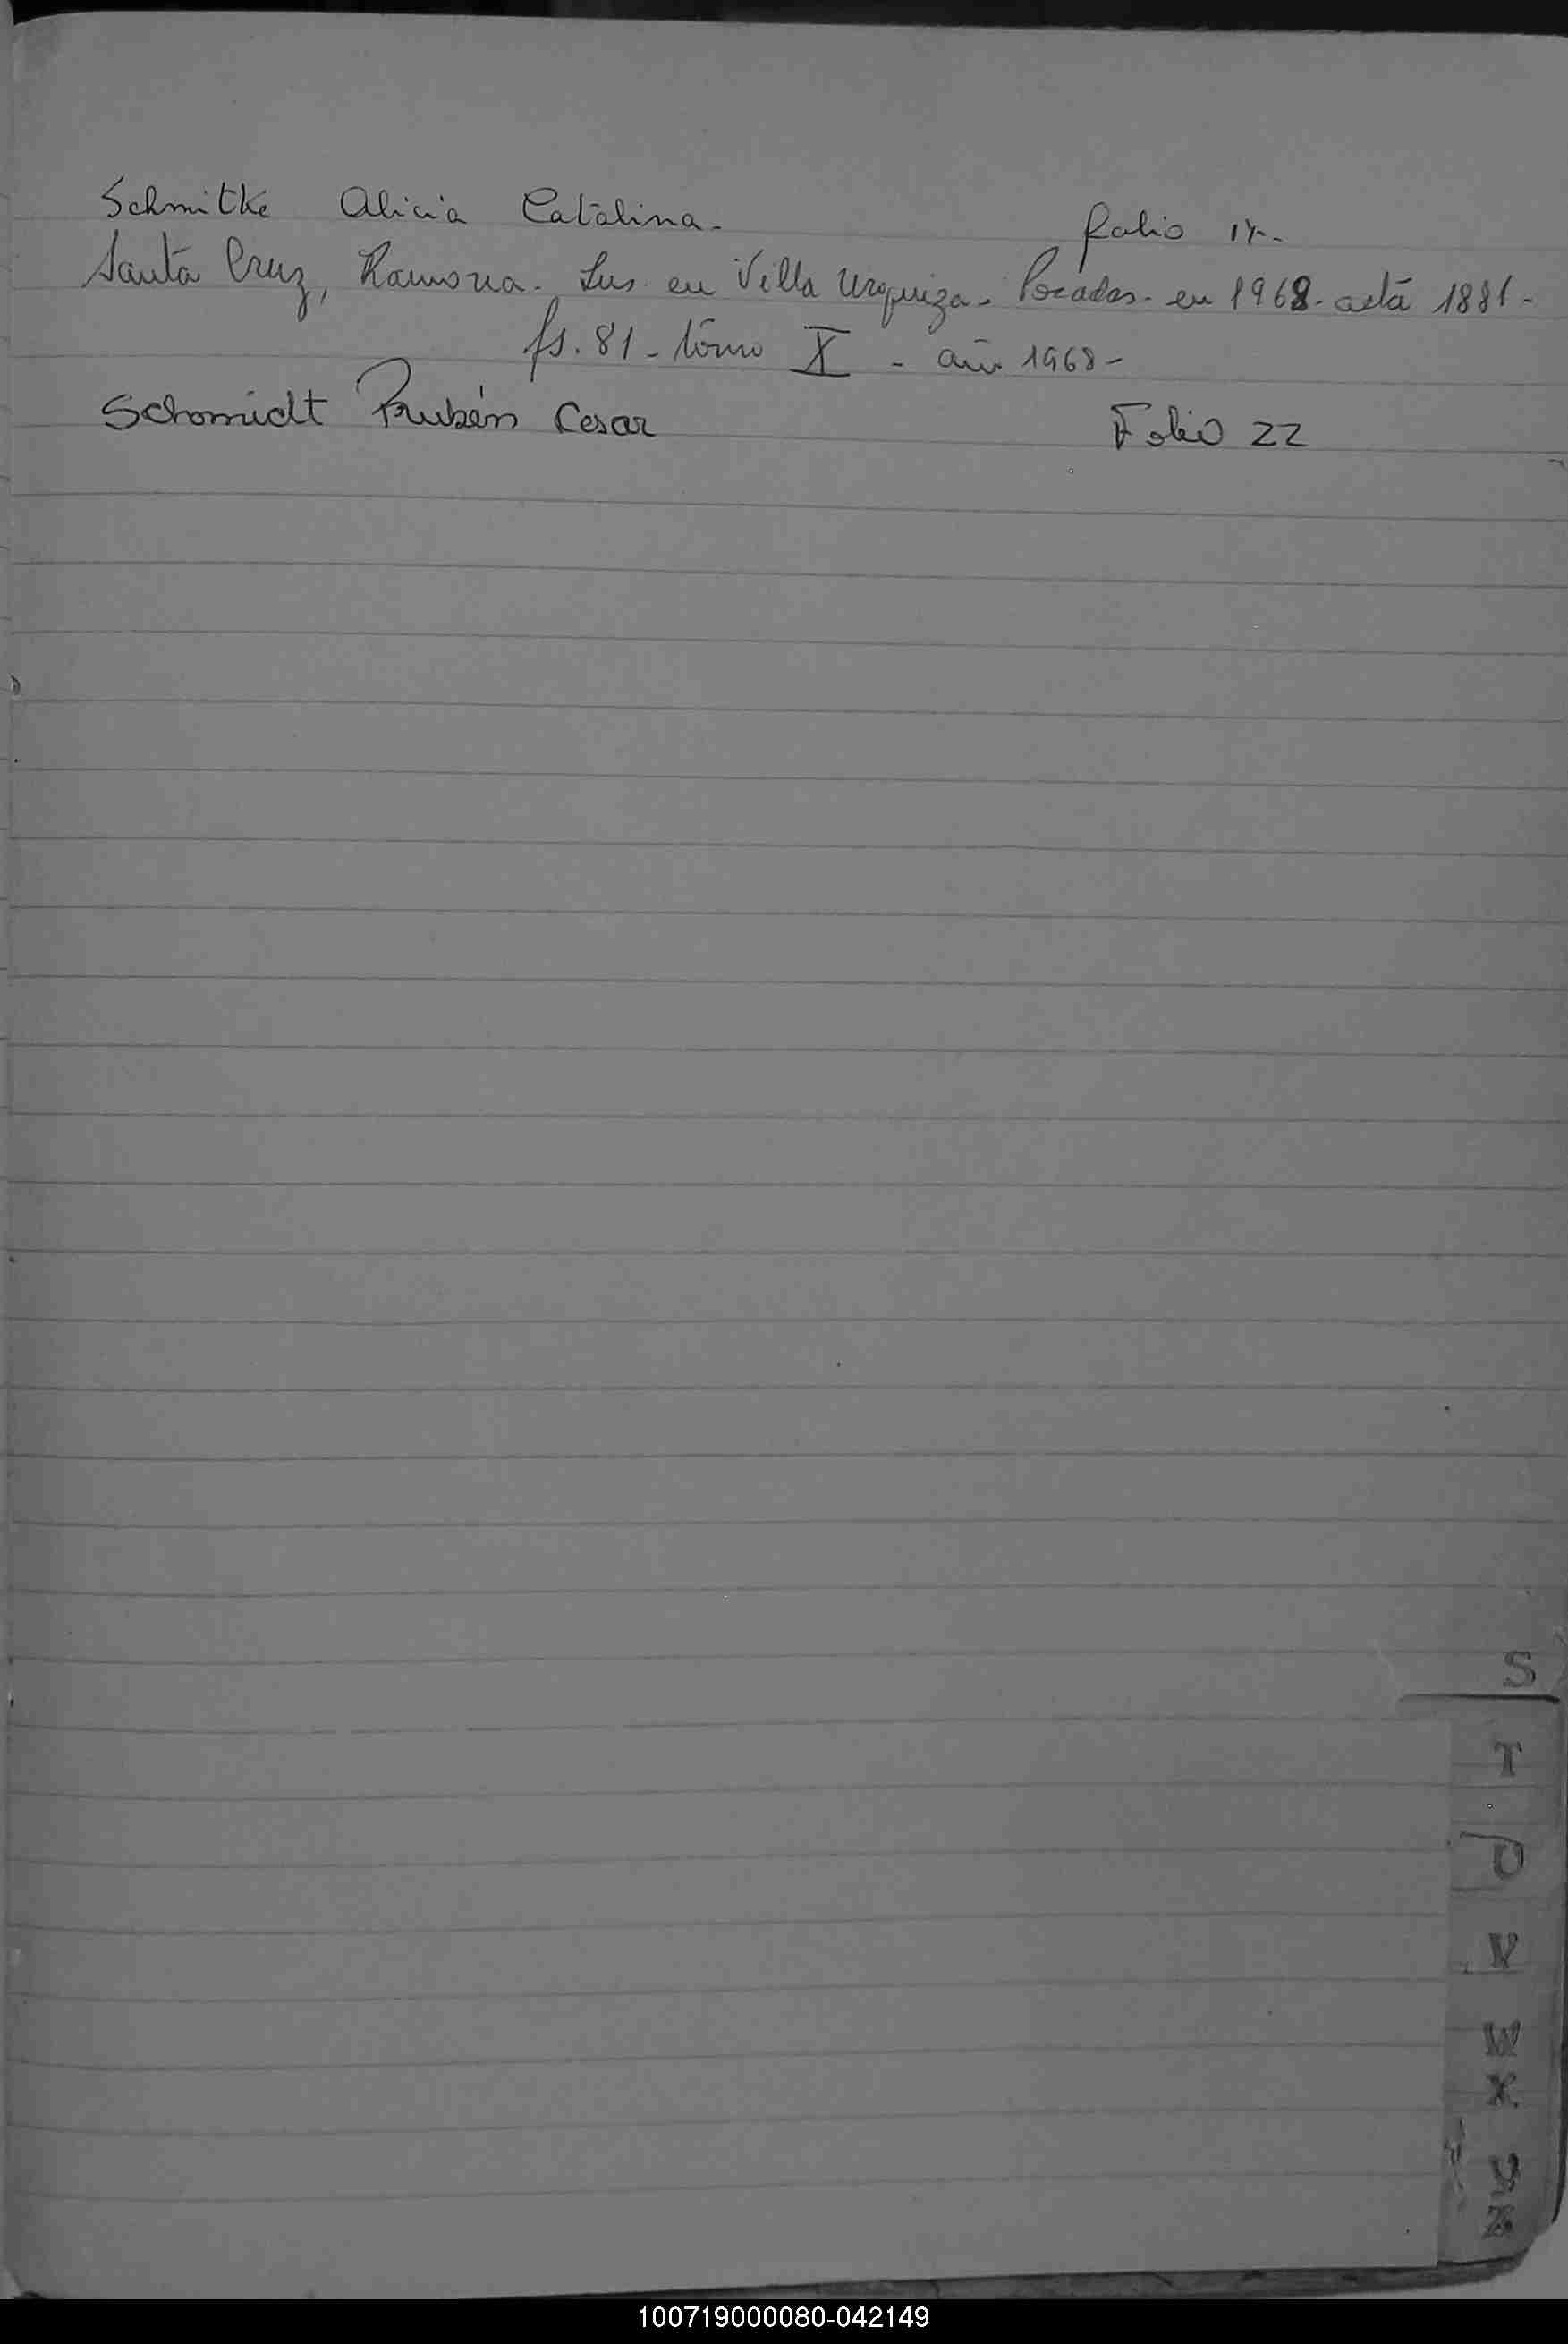 Schmitke Alicia Catalina. folio 17.
Santa Cruz, Ramona. Ins. en Villa Urquiza. Posadas. en 1968. acta 1881.
fs. 81 - tomo X - año 1968 -
Schmidt Rubén Cesar Folio 22
S
T
U
V
W
X
Y
Z
100719000080-042149